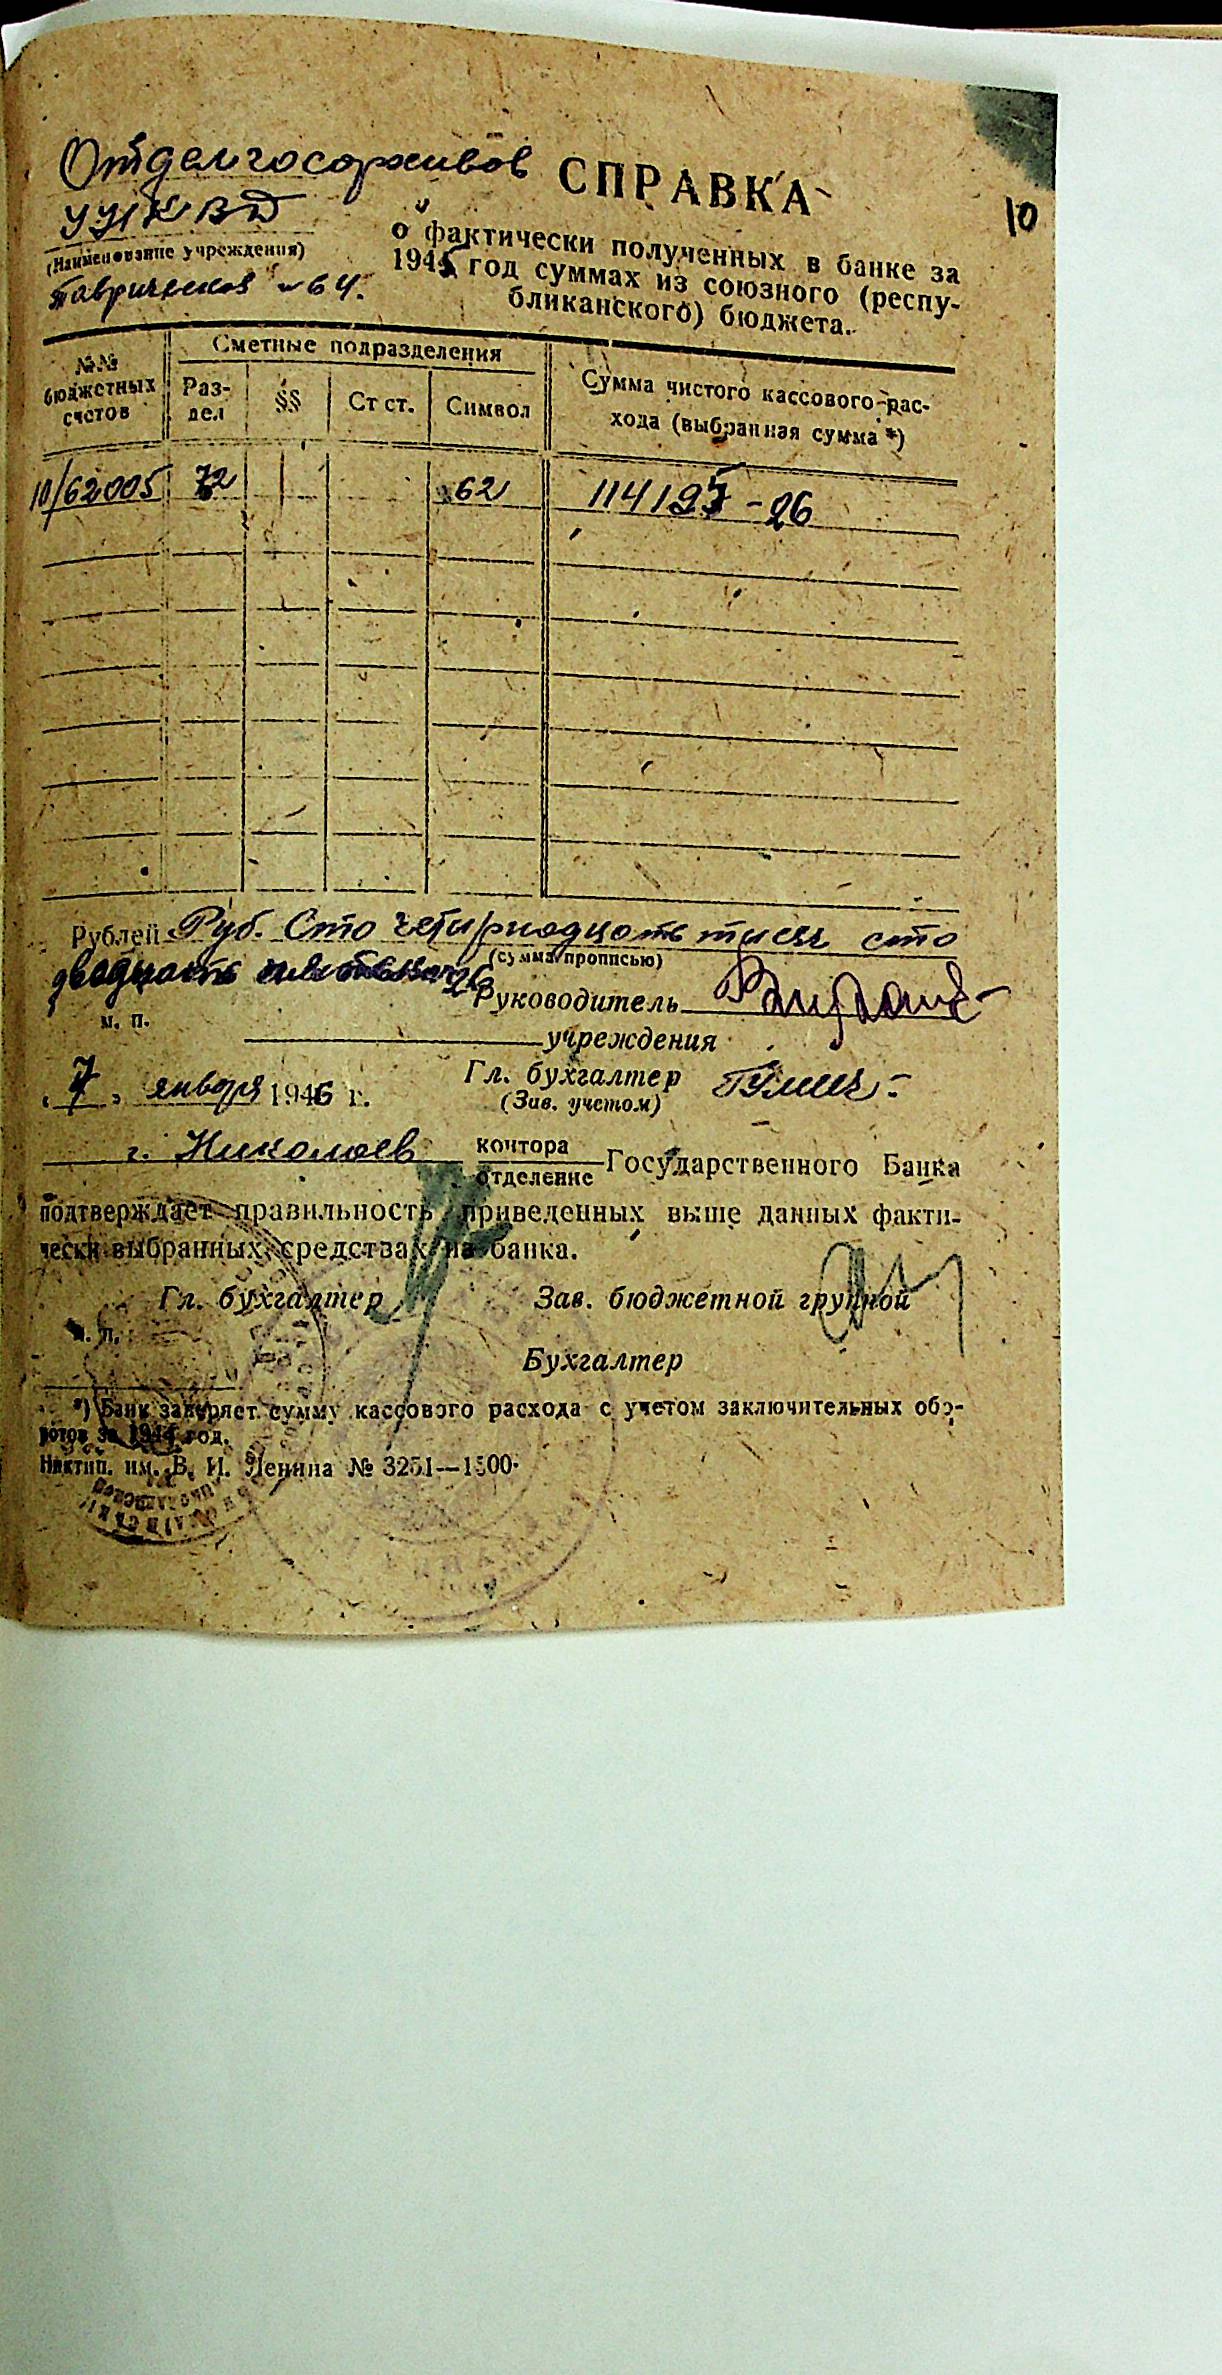 Отдел госархивов
УНКВД
(Наименование учреждения)
Таврическая 64.
СПРАВКА
10
о фактически полученных в банке за
1945 год суммах из союзного (респу-
бликанского) бюджета.
№№
бюджетных
счетов
Сметные подразделения
Раз-
дел
§§
Ст ст.
Символ
Сумма чистого кассового рас-
хода (выбранная сумма *)
10/62005 72 62 114125-26
Рублей Руб. Сто четырнадцать тысяч сто
(сумма прописью)
двадцать пять 26
Руководитель
м. п.
учреждения
Гл. бухгалтер
(Зав. учетом)
„7" января 1946 г.
г. Николаев контора
отделение
Государственного Банка
подтверждает правильность приведенных выше данных факти-
чески выбранных средствах из банка.
Гл. бухгалтер Зав. бюджетной группой
м. п.
Бухгалтер
*) Банк заверяет сумму кассового расхода с учетом заключительных обо-
ротов за 1944 год.
Никтип. им. В. И. Ленина № 3251—1500